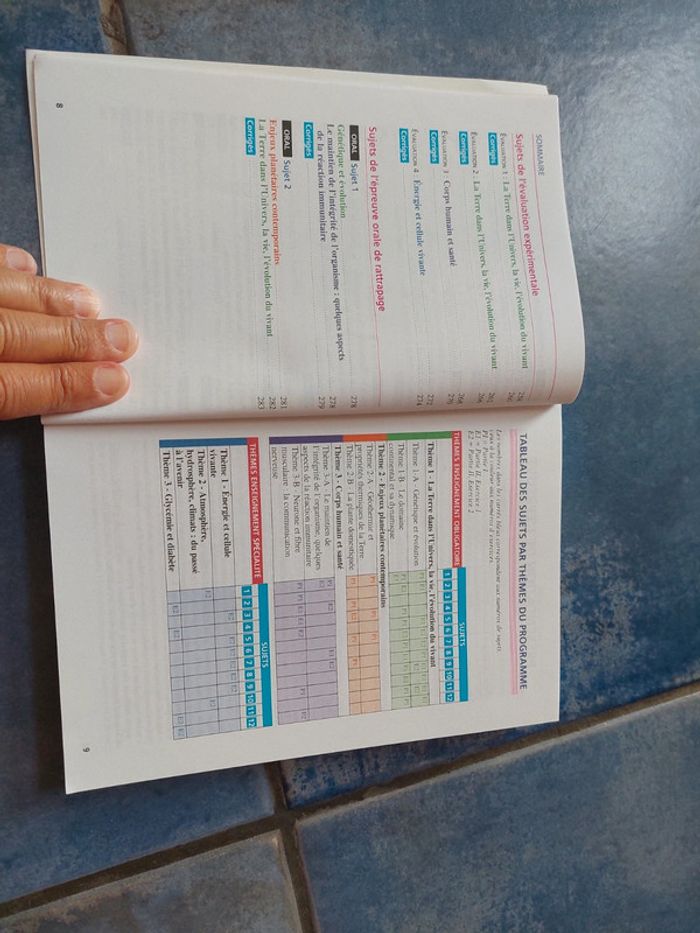 SOMMAIRE
Sujets de l'évaluation expérimentale
ÉVALUATION 1 : La Terre dans l'Univers, la vie, l'évolution du vivant
Corrigés
ÉVALUATION 2 : La Terre dans l'Univers, la vie, l'évolution du vivant
Corrigés
ÉVALUATION 3 : Corps humain et santé
Corrigés
ÉVALUATION 4 : Énergie et cellule vivante
Corrigés 274
Sujets de l'épreuve orale de rattrapage
ORAL Sujet 1
Génétique et évolution
Le maintien de l'intégrité de l'organisme : quelques aspects
de la réaction immunitaire 278
Corrigés 279
ORAL Sujet 2 281
Enjeux planétaires contemporains 282
La Terre dans l'Univers, la vie, l'évolution du vivant
Corrigés 283
8
TABLEAU DES SUJETS PAR THÈMES DU PROGRAMME
Les nombres dans les carrés bleus correspondent aux numéros de sujets,
ceux à la couleur aux numéros d'exercices.
P1 = Partie I
E1 = Partie II, Exercice 1
E2 = Partie II, Exercice 2
THÈMES ENSEIGNEMENT OBLIGATOIRE
SUJETS
1 2 3 4 5 6 7 8 9 10 11 12
Thème 1 - La Terre dans l'Univers, la vie, l'évolution du vivant
Thème 1-A - Génétique et évolution
Thème 1-B - Le domaine
continental et sa dynamique
Thème 2 - Enjeux planétaires contemporains
Thème 2-A - Géothermie et
propriétés thermiques de la Terre
Thème 2-B - La plante domestiquée
Thème 3 - Corps humain et santé
Thème 3-A - Le maintien de
l'intégrité de l'organisme, quelques
aspects de la réaction immunitaire
Thème 3-B - Neurone et fibre
musculaire : la communication
nerveuse
THÈMES ENSEIGNEMENT SPÉCIALITÉ
SUJETS
1 2 3 4 5 6 7 8 9 10 11 12
Thème 1 - Énergie et cellule
vivante
Thème 2 - Atmosphère,
hydrosphère, climats : du passé
à l'avenir
Thème 3 - Glycémie et diabète
9